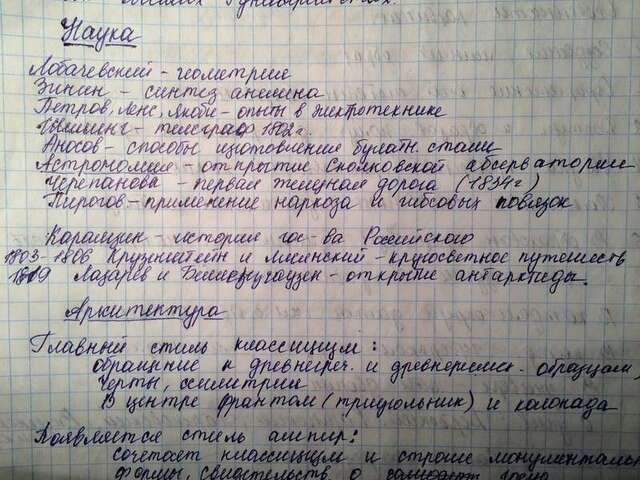 Наука
Лобачевский - геометрия
Зинин - синтез анелина
Петров, Ленс, Якоби - опыты в электротехнике
- телеграф 1802г.
Аносов - способы изготовления булатн. стали
Астрономия - открытие абсерватории
Черепанова - первая железная дорога (1834г)
Пирогов - применение наркоза и гибсовых повязок
Карамзин - история гос-ва Российского
1803-1806 Крузенштейн и Лисянский - кругосветное путешеств
1819 Лазарев и - открытие антарктиды.
Архитектура
Главный стиль классицизм:
обращение к древнегреч. и древнеримск. образцам,
черты, симетрия
В центре франтом (триугольник) и колонада
Появляется стиль ампир:
сочетает классицизм и строгие монументальн
формы, свидетельств о